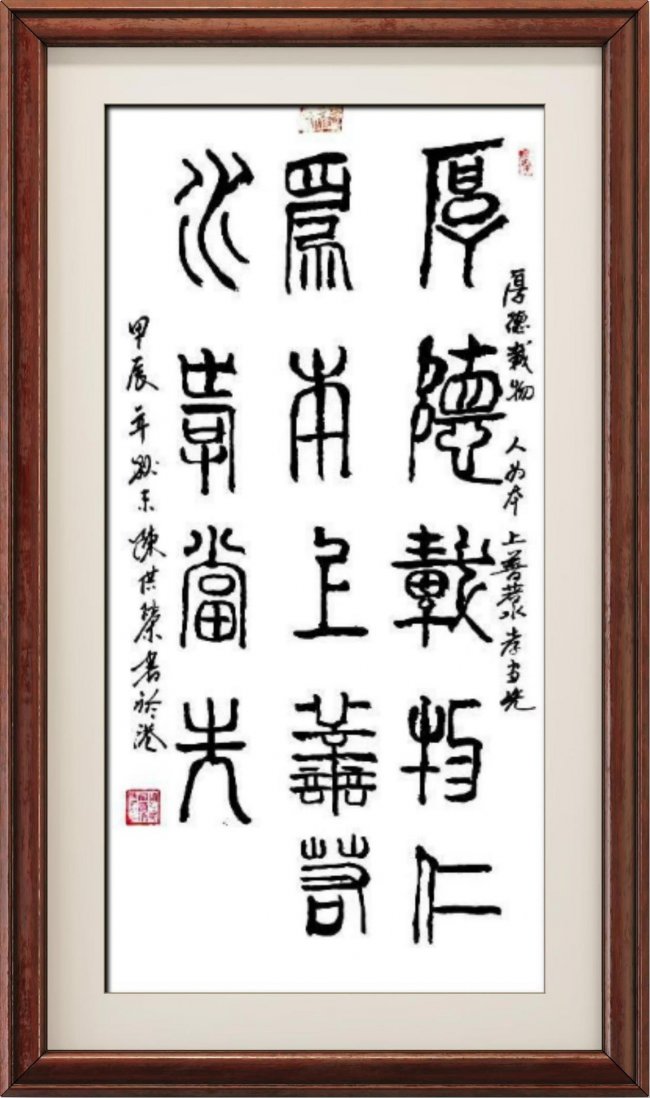 厚德載物 人为本 上善若水 孝当先
厚德載物仁
為本上善若
水孝當先
甲辰年 陳供榮書於港